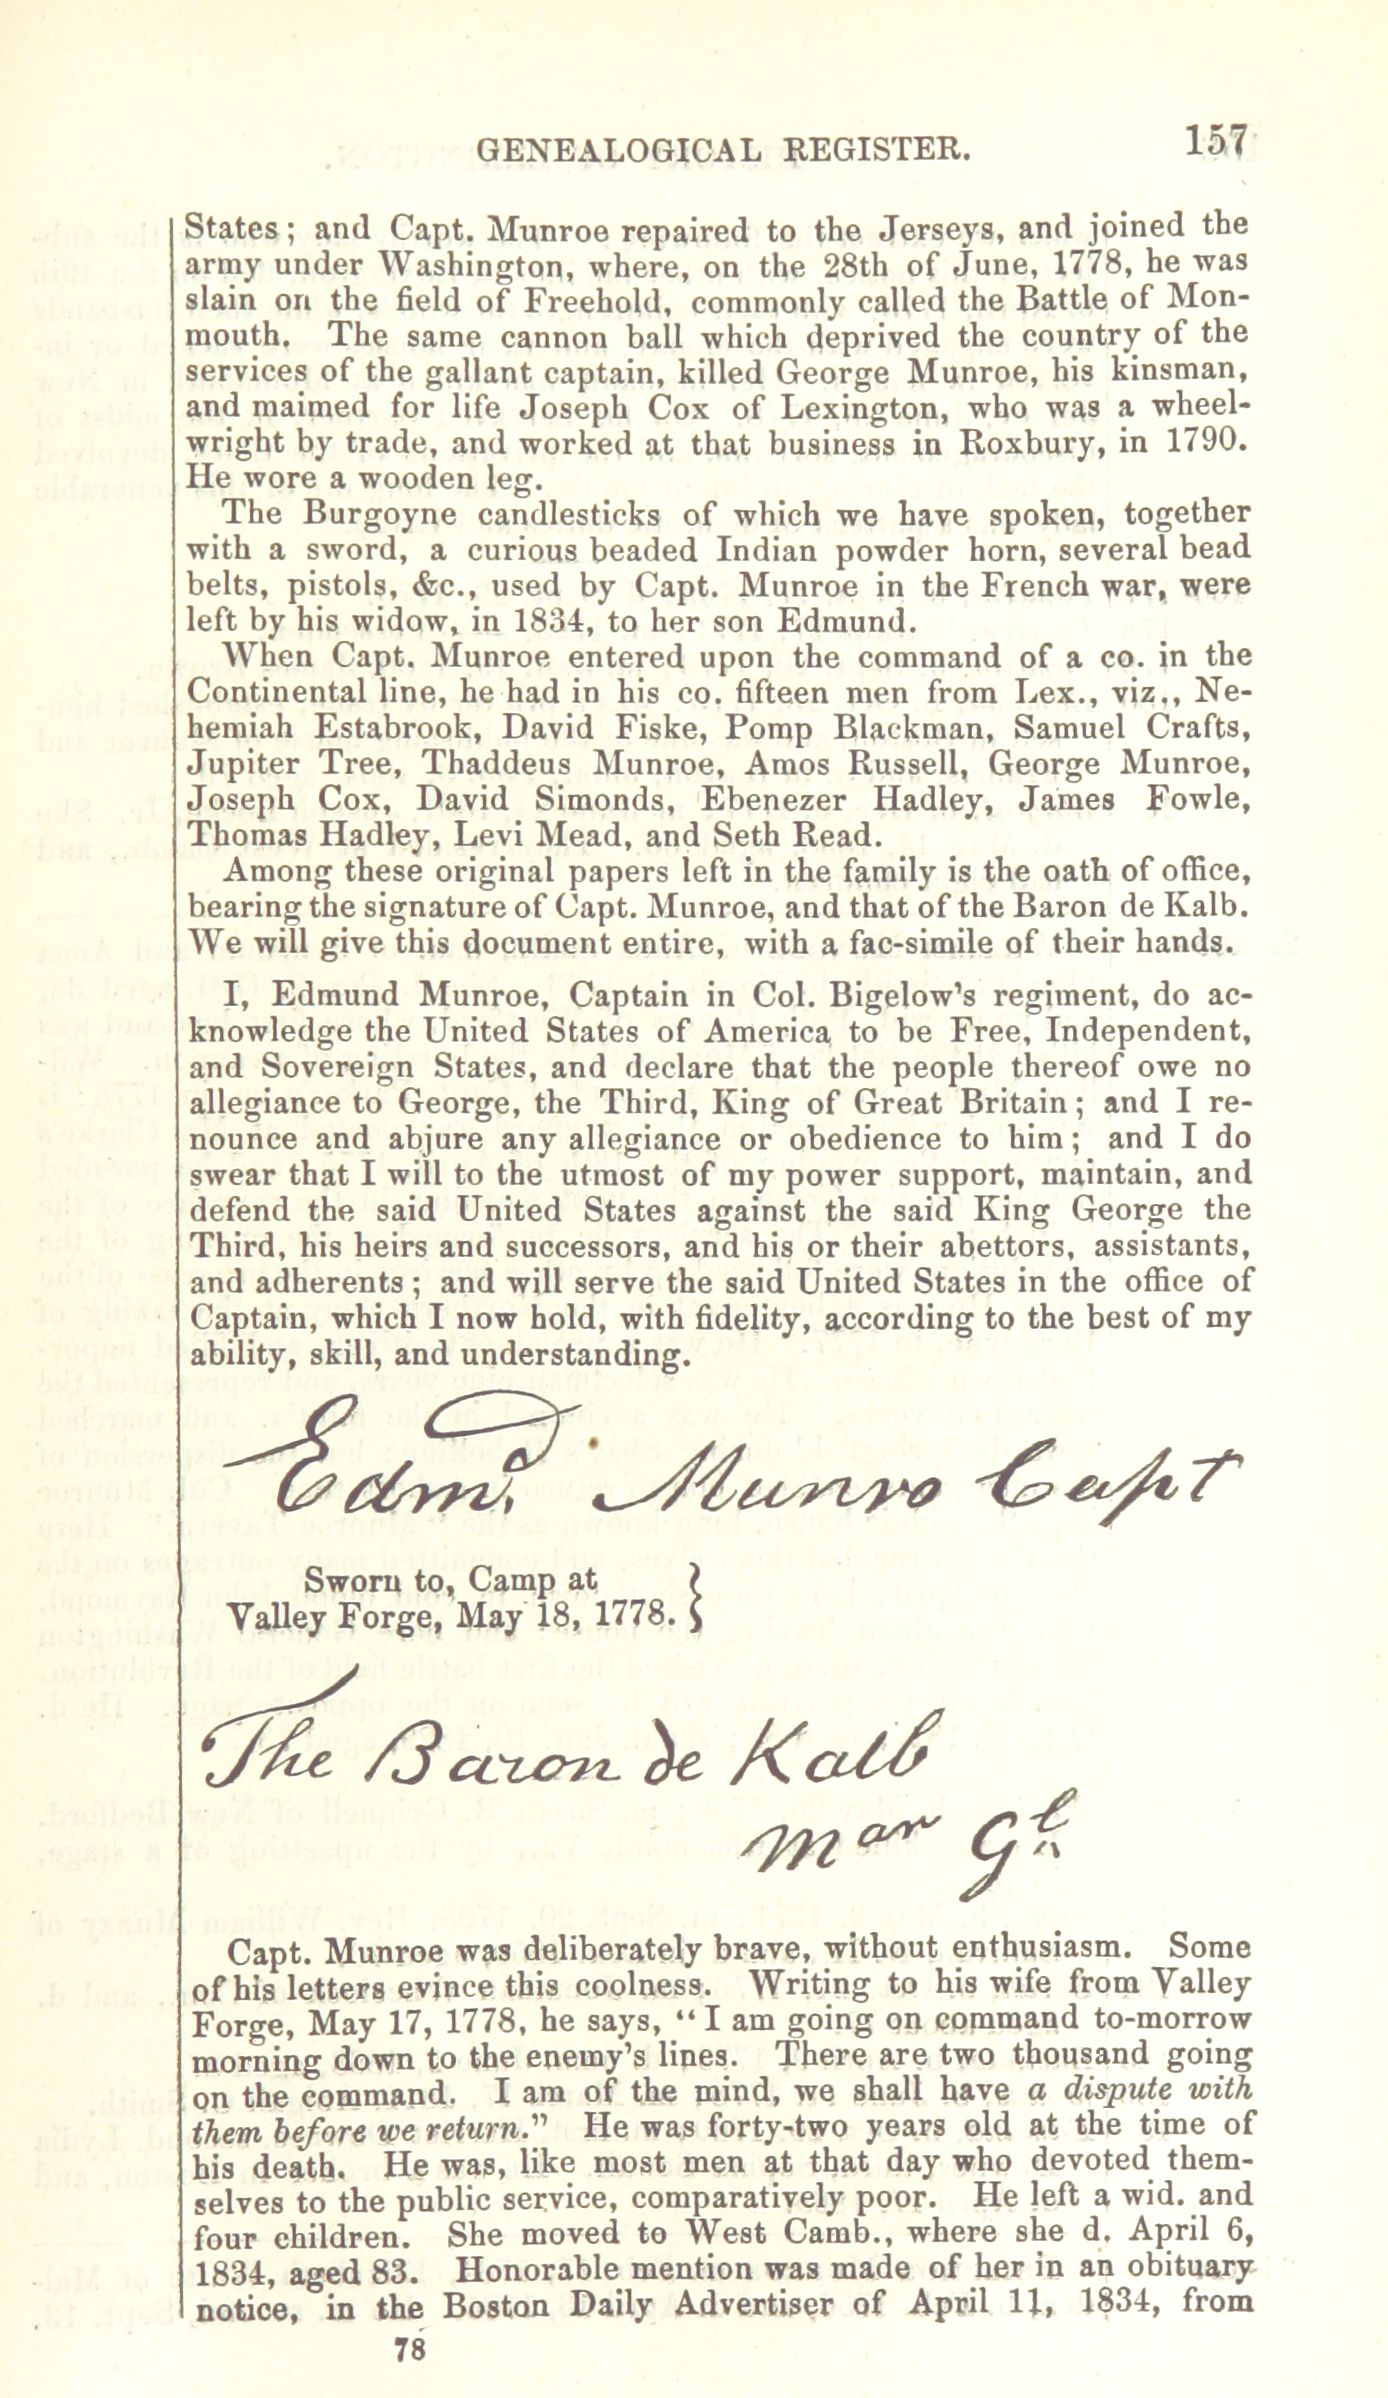 GENEALOGICAL REGISTER. 157
States; and Capt. Munroe repaired to the Jerseys, and joined the
army under Washington, where, on the 28th of June, 1778, he was
slain on the field of Freehold, commonly called the Battle of Mon-
mouth. The same cannon ball which deprived the country of the
services of the gallant captain, killed George Munroe, his kinsman,
and maimed for life Joseph Cox of Lexington, who was a wheel-
wright by trade, and worked at that business in Roxbury, in 1790.
He wore a wooden leg.
The Burgoyne candlesticks of which we have spoken, together
with a sword, a curious beaded Indian powder horn, several bead
belts, pistols, &c., used by Capt. Munroe in the French war, were
left by his widow, in 1834, to her son Edmund.
When Capt. Munroe entered upon the command of a co. in the
Continental line, he had in his co. fifteen men from Lex., viz., Ne-
hemiah Estabrook, David Fiske, Pomp Blackman, Samuel Crafts,
Jupiter Tree, Thaddeus Munroe, Amos Russell, George Munroe,
Joseph Cox, David Simonds, Ebenezer Hadley, James Fowle,
Thomas Hadley, Levi Mead, and Seth Read.
Among these original papers left in the family is the oath of office,
bearing the signature of Capt. Munroe, and that of the Baron de Kalb.
We will give this document entire, with a fac-simile of their hands.
I, Edmund Munroe, Captain in Col. Bigelow's regiment, do ac-
knowledge the United States of America to be Free, Independent,
and Sovereign States, and declare that the people thereof owe no
allegiance to George, the Third, King of Great Britain; and I re-
nounce and abjure any allegiance or obedience to him; and I do
swear that I will to the utmost of my power support, maintain, and
defend the said United States against the said King George the
Third, his heirs and successors, and his or their abettors, assistants,
and adherents; and will serve the said United States in the office of
Captain, which I now hold, with fidelity, according to the best of my
ability, skill, and understanding.
Edmd. Munro Capt
Sworn to, Camp at
Valley Forge, May 18, 1778. }
The Baron de Kalb
Mar Gl
Capt. Munroe was deliberately brave, without enthusiasm. Some
of his letters evince this coolness. Writing to his wife from Valley
Forge, May 17, 1778, he says, "I am going on command to-morrow
morning down to the enemy's lines. There are two thousand going
on the command. I am of the mind, we shall have a dispute with
them before we return." He was forty-two years old at the time of
his death. He was, like most men at that day who devoted them-
selves to the public service, comparatively poor. He left a wid. and
four children. She moved to West Camb., where she d. April 6,
1834, aged 83. Honorable mention was made of her in an obituary
notice, in the Boston Daily Advertiser of April 11, 1834, from
78